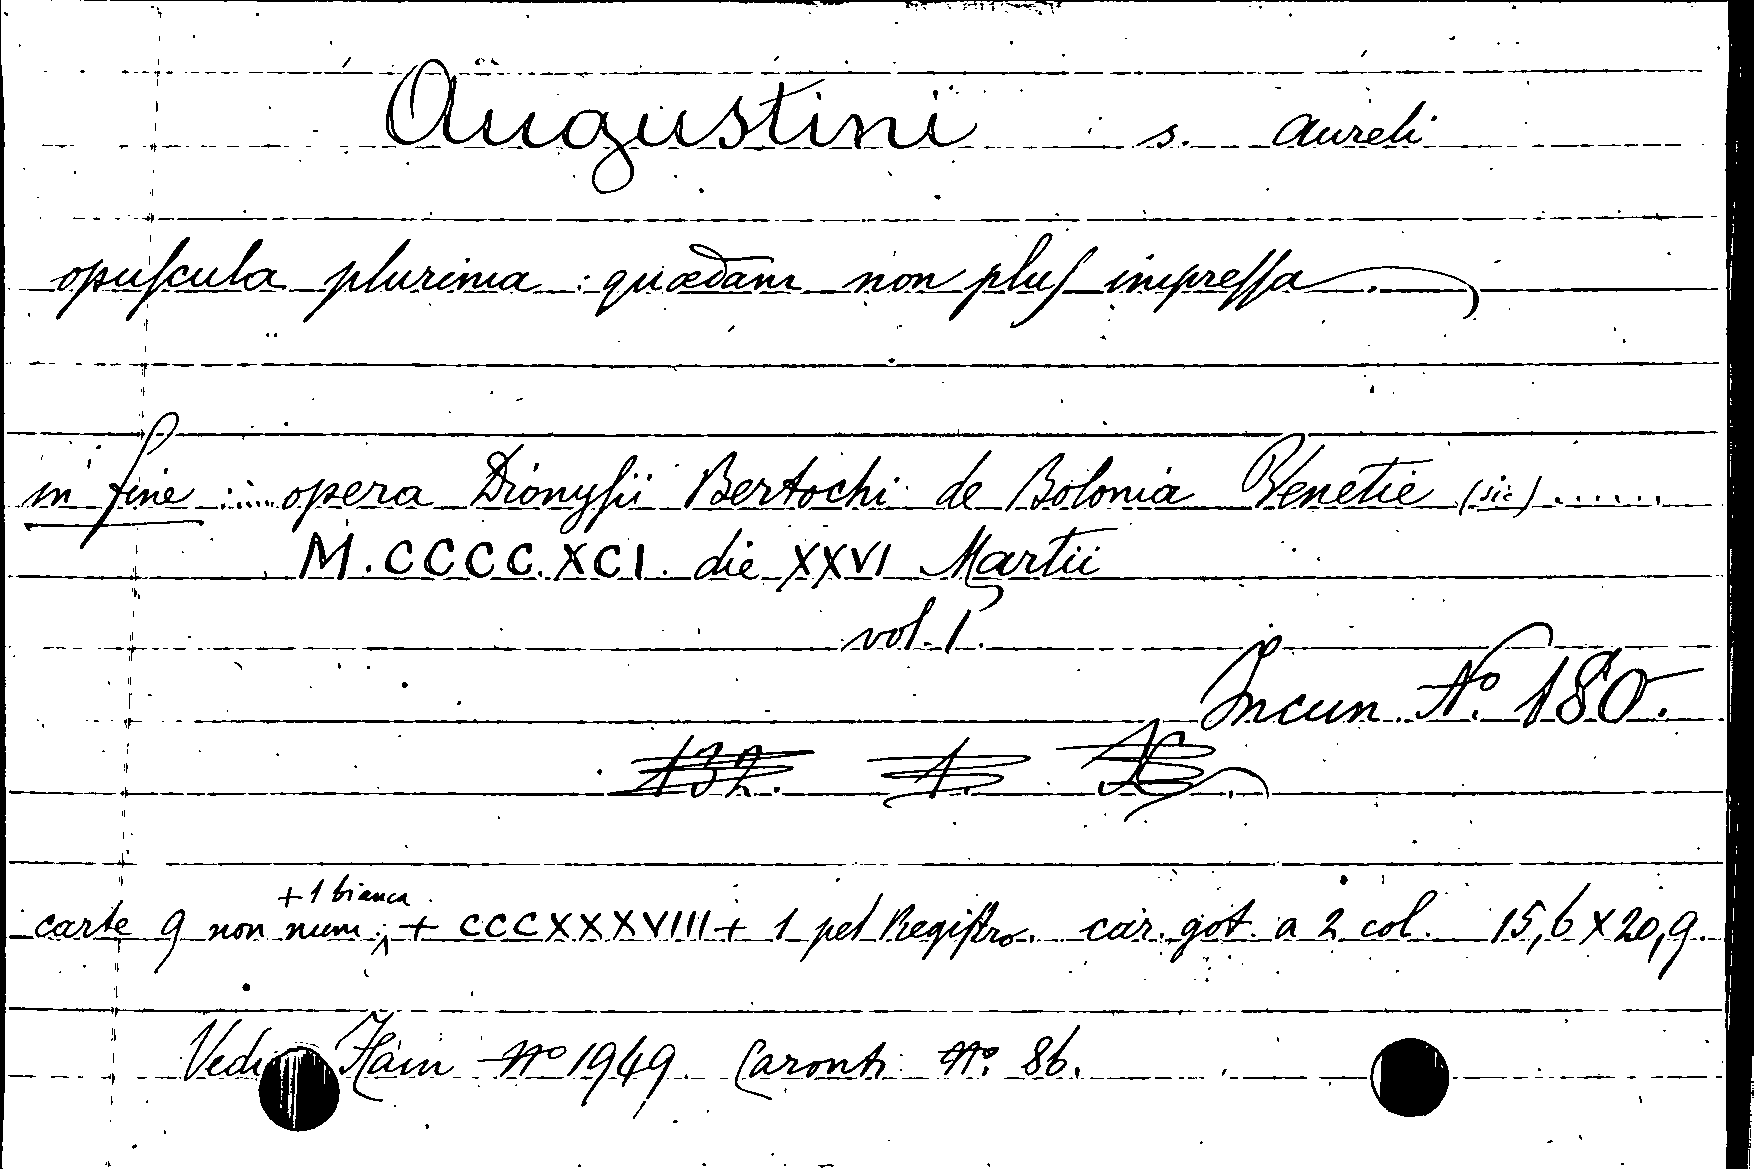 Augustini s. Aureli
opuſcula plurima : quædam non pluſ impreſſa.
in fine :.... opera Dionyſii Bertochi de Bolonia Venetie (sic) ......
M.CCCC.XCI. die XXVI Martii
vol. 1.
Incun. Nº. 180.
132. A.
+ 1 bianca
carte 9 non num. + CCCXXXVIII + 1 pel Regiſtro. car. got. a 2 col. 15,6 X 20,9.
Vedi Hain Nº 1949. Caronti Nº. 86.